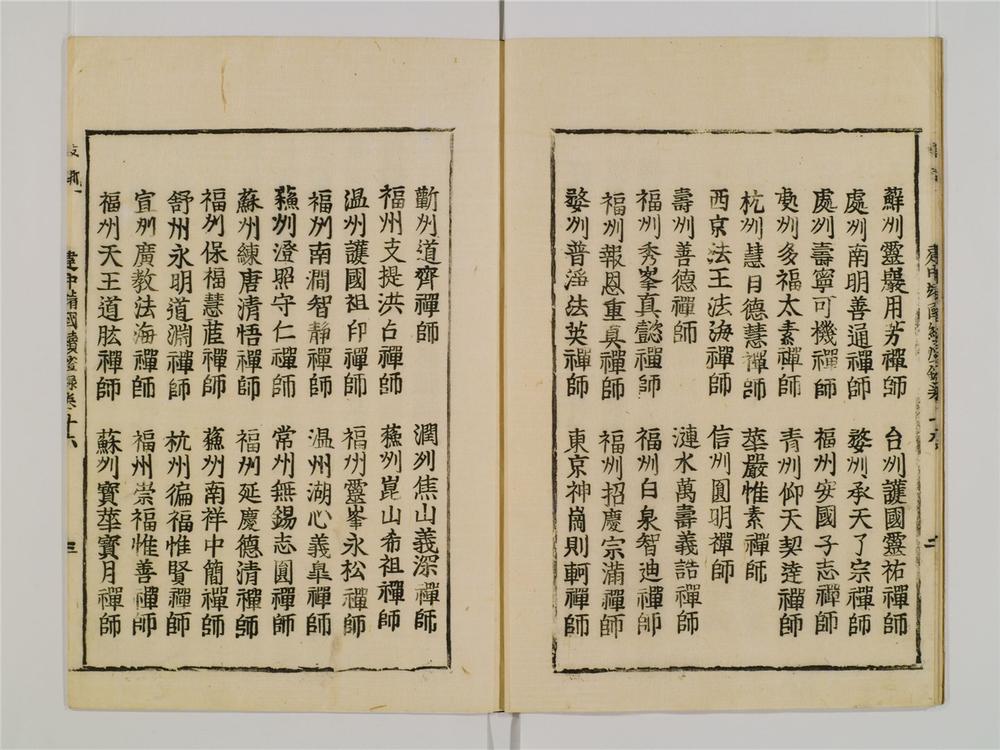 蘇州靈巖用芳禪師 台州護國靈祐禪師
處州南明善通禪師 婺州承天了宗禪師
處州壽寧可機禪師 福州安國子志禪師
處州多福太素禪師 青州仰天契逵禪師
杭州慧日德慧禪師 華嚴惟素禪師
西京法王法海禪師 信州圓明禪師
壽州善德禪師 漣水萬壽義誥禪師
福州秀峯真懿禪師 福州白泉智迪禪師
福州報恩重真禪師 福州招慶宗滿禪師
婺州普滛法英禪師 東京神崗則軻禪師
蘄州道齊禪師 潤州焦山義深禪師
福州支提洪台禪師 蘓州崑山希祖禪師
温州護國祖印禪師 福州靈峯永松禪師
福州南澗智静禪師 温州湖心義臯禪師
蘓州澄照守仁禪師 常州無錫志圓禪師
蘇州練唐清悟禪師 福州延慶德清禪師
福州保福慧蓝禪師 蘓州南祥中簡禪師
舒州永明道淵禪師 杭州徧福惟賢禪師
宣州廣教法海禪師 福州崇福惟善禪師
福州天王道肱禪師 蘇州寳華寳月禪師
建中靖國續燈錄卷十六 三